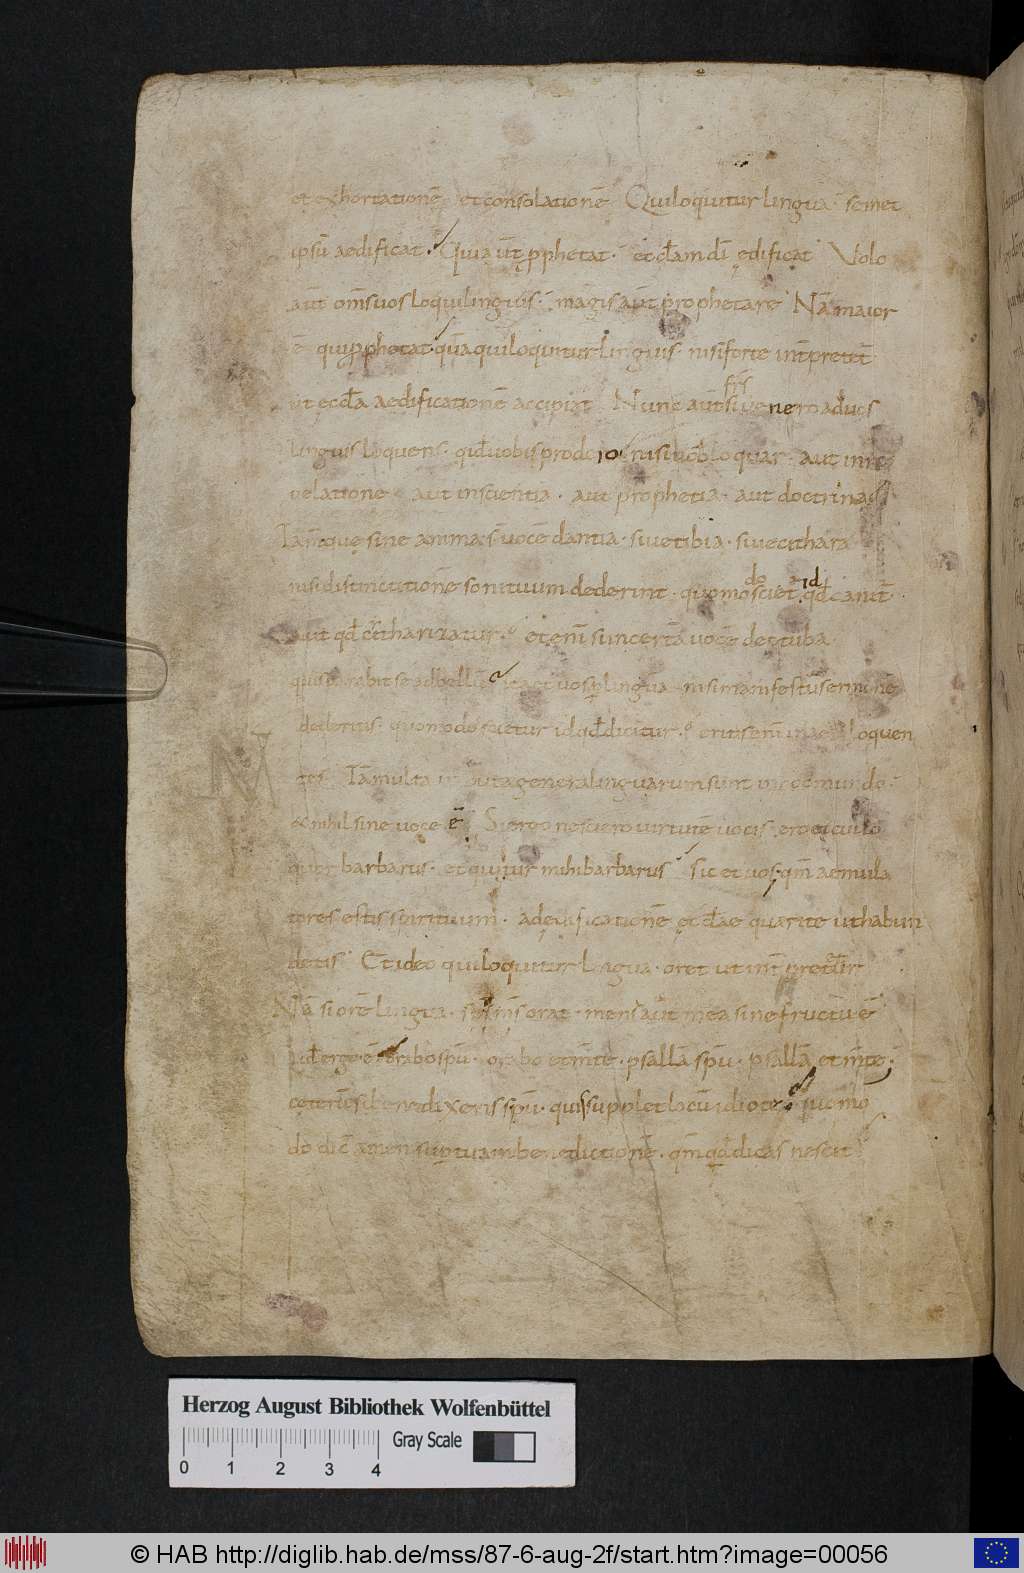 et exhortationē et consolationē Qui loquitur lingua semet
ipsū aedificat. Qui aūt pphetat. eccłam dī ędificat Volo
aūt om̄s uos loqui linguis. magis aūt prophetare Nā maior
ē qui pphetat quā qui loquitur linguis. nisi forte int̄pretet
ut eccła aedificationē accipiat Nunc aūt si uenero ad uos
frs̄
linguis loquens. qid uobis prodero nisi uobis loquar. aut in re
uelatione aut in scientia. aut prophetia. aut doctrina
Tamque sine anima s̄ uocē dantia. siue tibia. siue cithara
nisi distinctionē sonituum dederint. quomo sciet qd canit.
do id
aut qd citharizatur. etenī si incertā uocē det tuba
quis parabit se ad bellū ita et uos p lingua nisi manifestū sermonē
dederitis. quomodo scietur id qd dicitur. eritis enī in aera loquen
tes Tā multa ut puta genera linguarum sunt in hoc mundo.
& nihil sine uoce ē Si ergo nesciero uirtutē uocis. ero ei cui lo
quor barbarus. et qui loquitur mihi barbarus sic et uos. qm̄ aemula
tores estis spirituum. ad edificationē eccłae quaerite ut habun
detis Et ideo qui loquitur lingua. oret ut int̄pretatur
Nā si orē lingua. sps̄ ms̄ orat. mens aūt mea sine fructu ē
Quid ergo ē orabo spū. orabo et mte. psallā spū. psallā et mte;
ceterū si benedixeris spū. quis supplet locū idiotę quomo
do dic̄ amen sup tuam benedictionē. qm̄ qd dicas nescit
Herzog August Bibliothek Wolfenbüttel
Gray Scale
0 1 2 3 4
© HAB http://diglib.hab.de/mss/87-6-aug-2f/start.htm?image=00056